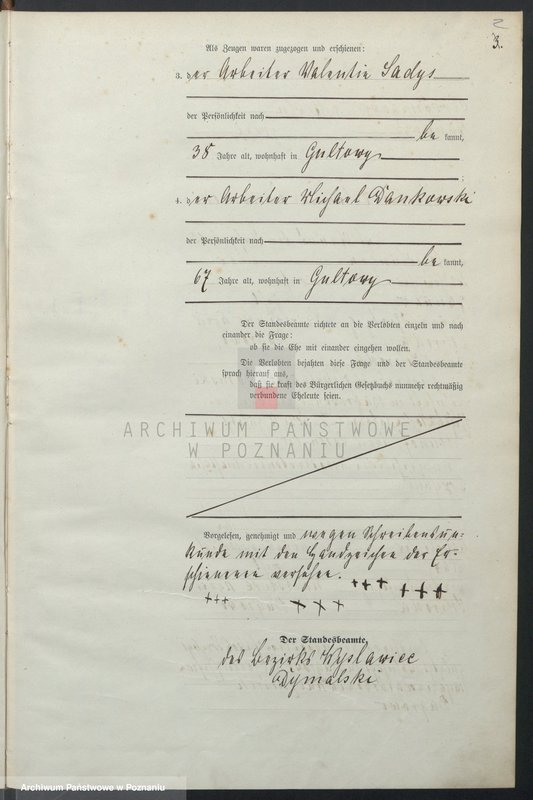 2
3.
Als Zeugen waren zugezogen und erschienen:
3. der Arbeiter Valentin Sadys
der Persönlichkeit nach
be kannt,
38 Jahre alt, wohnhaft in Gultowy
;
4. der Arbeiter Michael Dankowski
der Persönlichkeit nach
be kannt,
67 Jahre alt, wohnhaft in Gultowy
Der Standesbeamte richtete an die Verlobten einzeln und nach
einander die Frage:
ob sie die Ehe mit einander eingehen wollen.
Die Verlobten bejahten diese Frage und der Standesbeamte
sprach hierauf aus,
daß sie kraft des Bürgerlichen Gesetzbuchs nunmehr rechtmäßig
verbundene Eheleute seien.
ARCHIWUM PAŃSTWOWE
W POZNANIU
Vorgelesen, genehmigt und wegen Schreibensun=
kunde mit den Handzeichen der Er-
schienenen versehen.
+++ +++
+++ +++
Der Standesbeamte,
des Bezirks Wyslawice
Dymalski
Archiwum Państwowe w Poznaniu